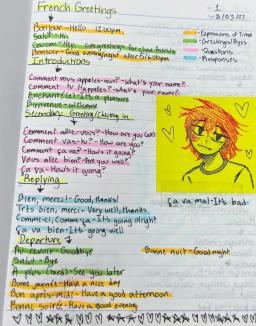 French Greetings
- 1
- 8/03/23
Bonjour - Hello 12:00pm
Salut - Hi
Coucou - Hey - cute greetings for close friends
Bonsoir - Good evening/night after 5/6:00pm
- Expressions of Time
- Greetings/Byes
- Questions
- Responses
Introductions
Comment vous appelez-vous? - what's your name?
Comment tu t'appelles? - what's your name?
Enchanté(e) - It's a pleasure
Bienvenue - welcome
Secondary Greeting/Checking In
Comment allez-vous? - How are you (all)
Comment vas-tu? - How are you?
Comment ça va? - How's it going?
Vous allez bien? - Are you well?
Ça va - How's it going?
Replying
Bien, merci! - Good, thanks!
Très bien, merci - Very well, thanks
Comme-ci, comme-ça - It's going alright
Ça va bien - It's going well
Ça va mal - It's bad
Departure
Au revoir - Goodbye
Bonne nuit - Good night
Salut - Bye
À plus (tard) - See you later
Bonne journée - Have a nice day
Bon après-midi - Have a good afternoon
Bonne soirée - Have a good evening